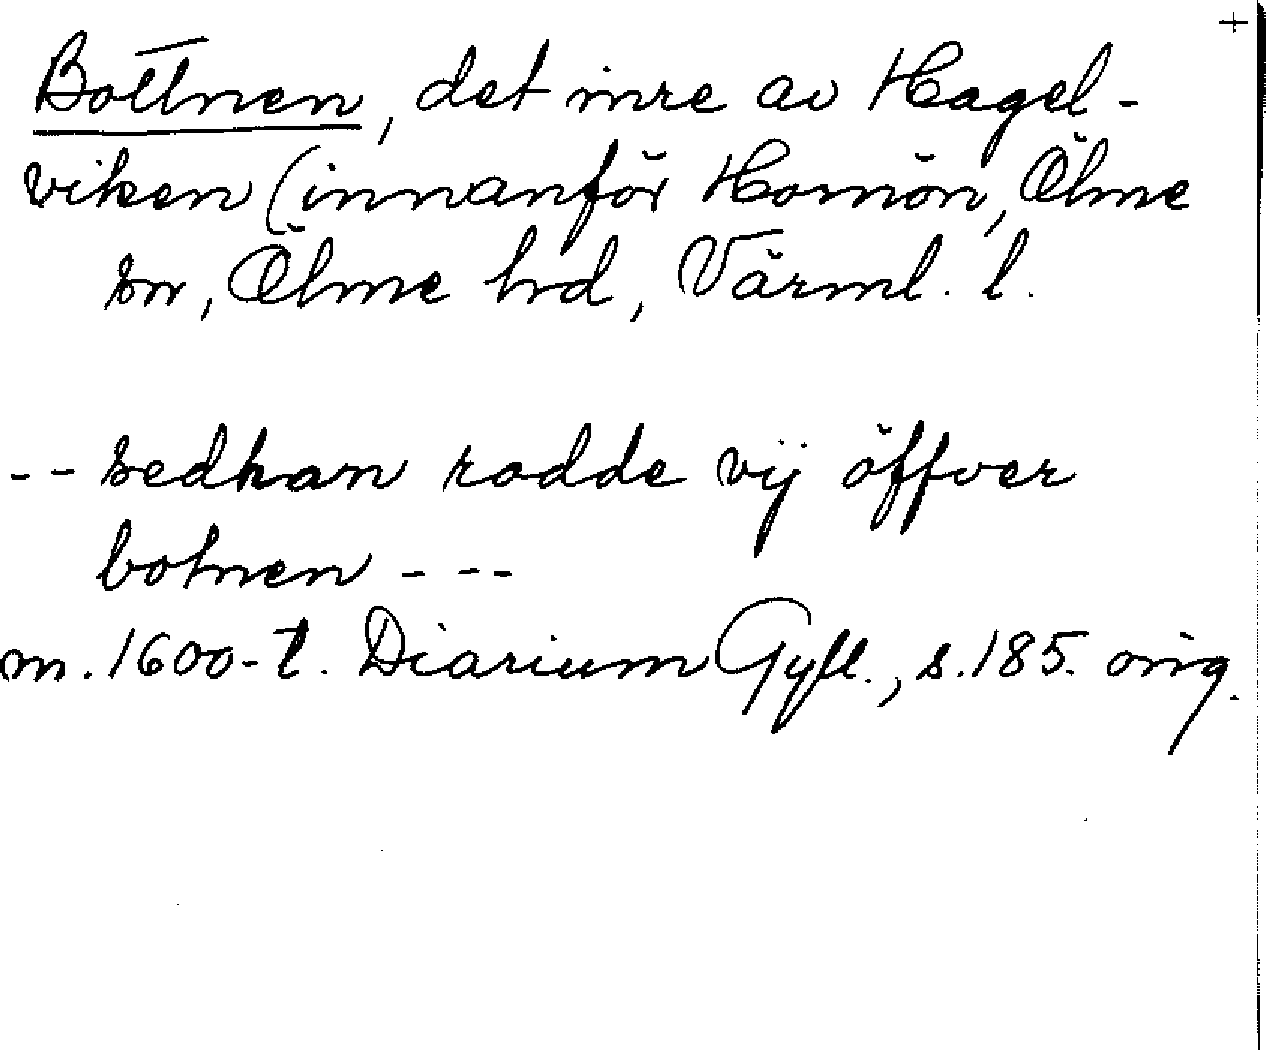 +
Bottnen, det inre av Hagel-
viken (innanför Hornön, Ölme
sn, Ölme hd, Värml. l.
-- sedhan rodde vij öffver
botnen ---
m. 1600-t. Diarium Gyll., s. 185. orig.